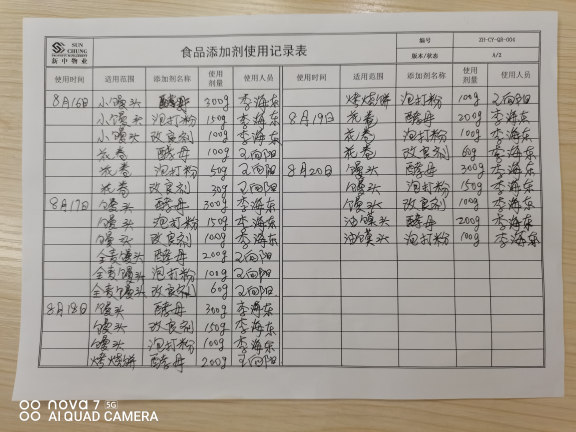 SUN CHUNG
新中物业
食品添加剂使用记录表
编号 ZH-CY-QR-004
版本/状态 A/2
使用时间 适用范围 添加剂名称 使用剂量 使用人员
8月16日 小馒头 酵母 300g 李海东
小馒头 泡打粉 150g 李海东
小馒头 改良剂 100g 李海东
花卷 酵母 100g 王向阳
花卷 泡打粉 50g 王向阳
花卷 改良剂 30g 王向阳
8月17日 馒头 酵母 300g 李海东
馒头 泡打粉 150g 李海东
馒头 改良剂 100g 李海东
全麦馒头 酵母 200g 王向阳
全麦馒头 泡打粉 100g 王向阳
全麦馒头 改良剂 60g 王向阳
8月18日 馒头 酵母 300g 李海东
馒头 改良剂 150g 李海东
馒头 泡打粉 100g 李海东
烤烧饼 酵母 200g 王向阳
使用时间 适用范围 添加剂名称 使用剂量 使用人员
烤烧饼 泡打粉 100g 王向阳
8月19日 花卷 酵母 200g 李海东
花卷 泡打粉 100g 李海东
花卷 改良剂 60g 李海东
8月20日 馒头 酵母 300g 李海东
馒头 泡打粉 150g 李海东
馒头 改良剂 100g 李海东
油馍头 酵母 200g 李海东
油馍头 泡打粉 100g 李海东
nova 7 5G
AI QUAD CAMERA